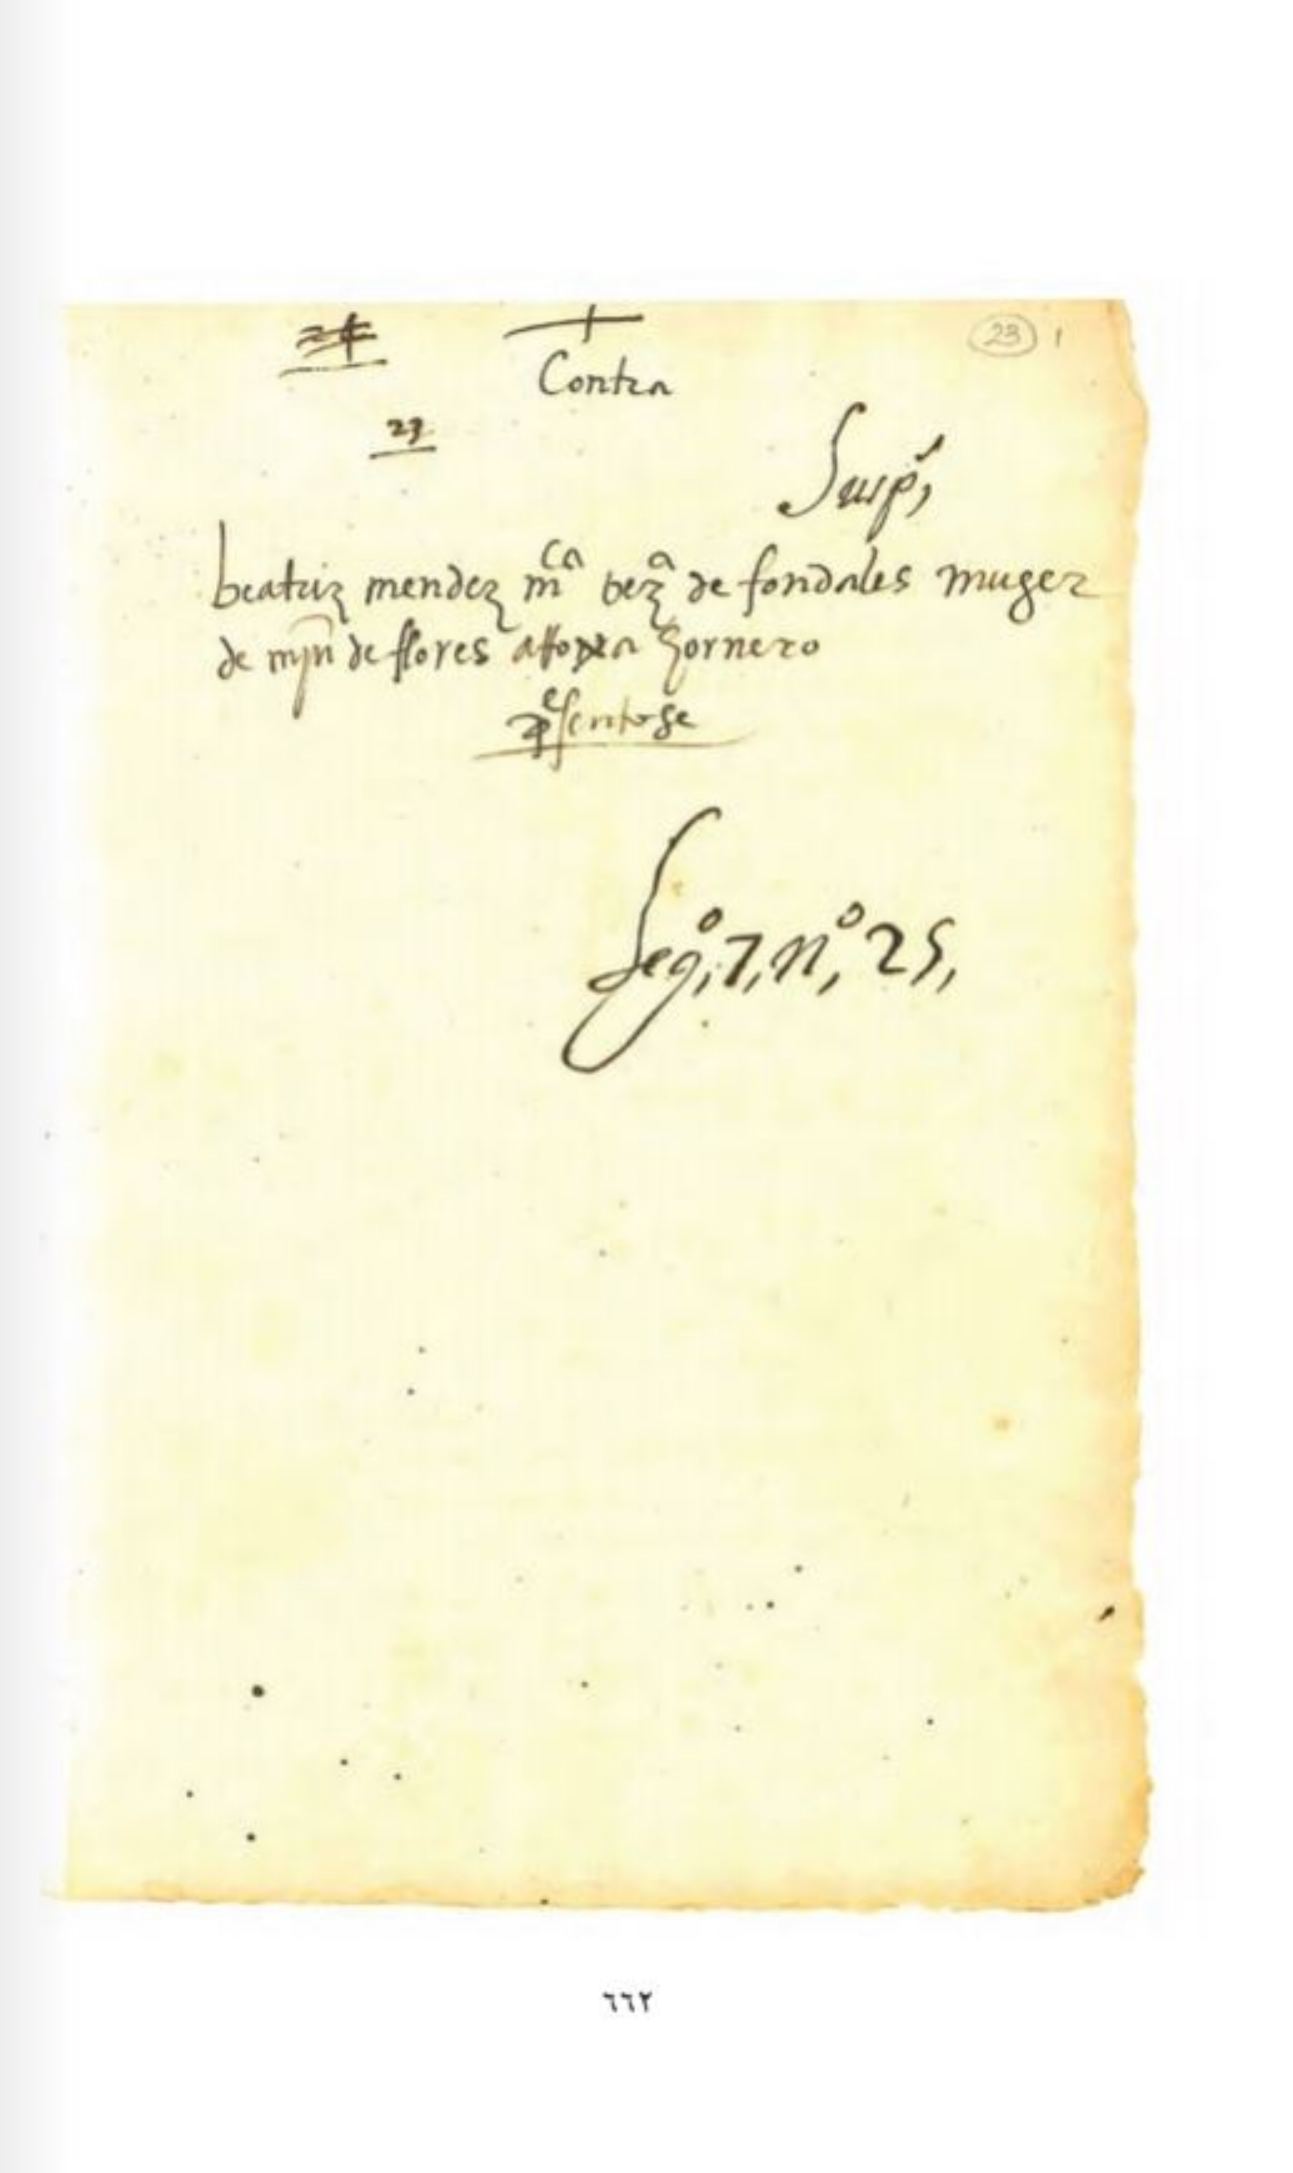 23 1
Contra
23
Susp,
beatriz mendez mca veza de fondales muger
de mjn de flores hornero
presentose
Lego, 7, no, 25,
٦٦٢